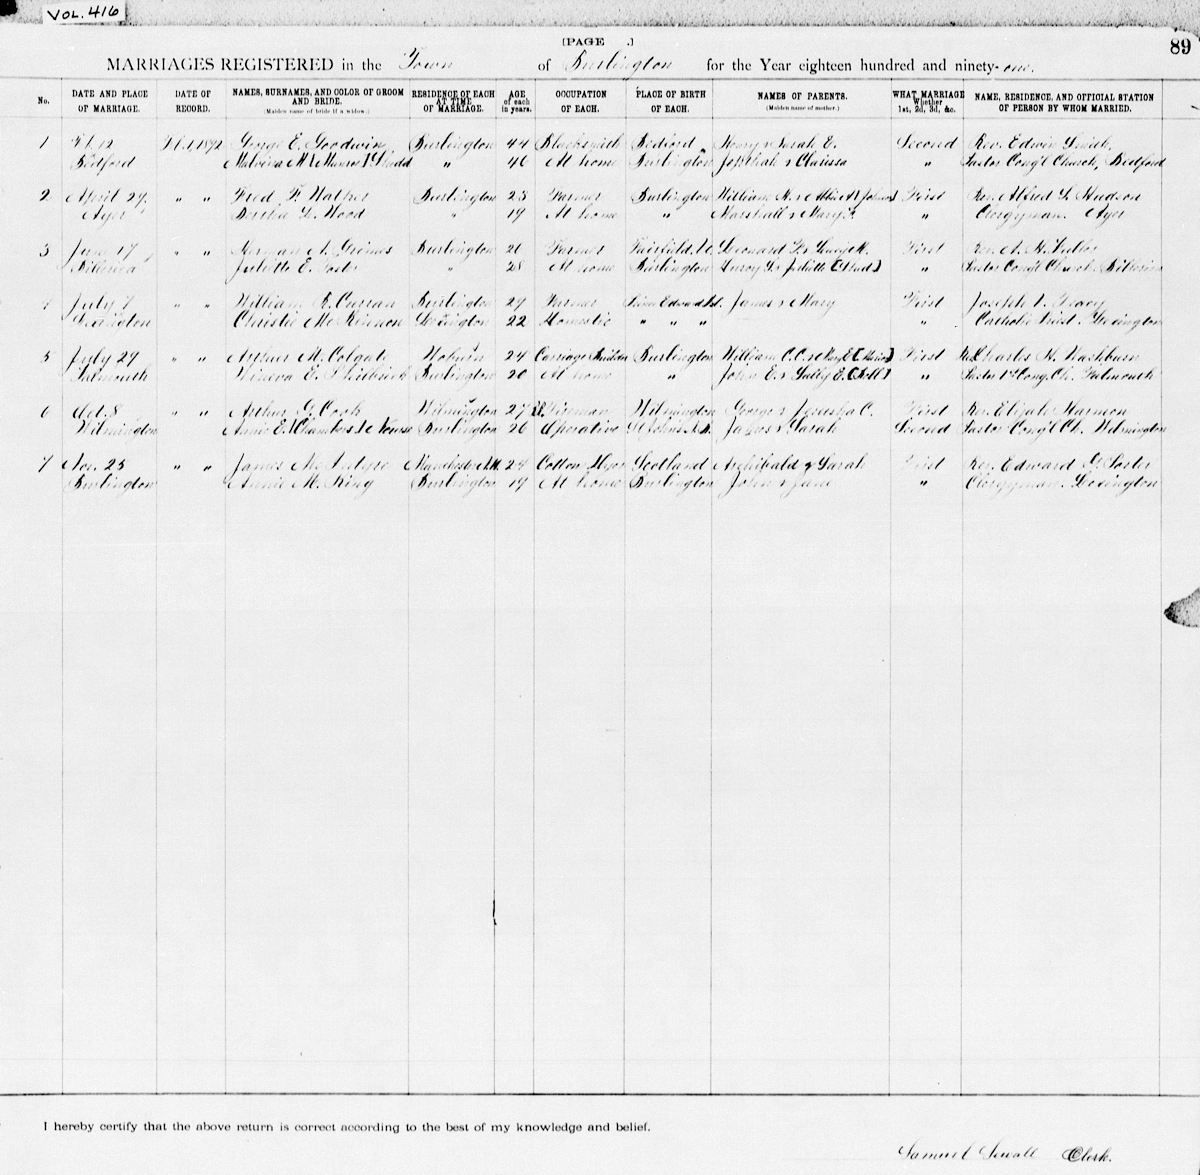 VOL. 416
[PAGE .]
89
MARRIAGES REGISTERED in the Town of Burlington for the Year eighteen hundred and ninety-one.
No. DATE AND PLACE OF MARRIAGE. DATE OF RECORD. NAMES, SURNAMES, AND COLOR OF GROOM AND BRIDE. (Maiden name of bride if a widow.) RESIDENCE OF EACH AT TIME OF MARRIAGE. AGE of each in years. OCCUPATION OF EACH. PLACE OF BIRTH OF EACH. NAMES OF PARENTS. (Maiden name of mother.) WHAT MARRIAGE Whether 1st, 2d, 3d, &c. NAME, RESIDENCE, AND OFFICIAL STATION OF PERSON BY WHOM MARRIED.
1 Feb. 12 Feb. 1, 1892 George E. Goodwin Burlington 44 Blacksmith Bedford Henry & Sarah E. Second Rev. Edwin Smith,
Bedford " 46 At home Burlington Josphiah & Clarissa " Pastor Cong'l Church, Bedford
2 April 29, " " Fred F. Walker Burlington 23 Farmer Burlington William H. & First Rev. Alfred S. Hudson
Ayer Bertha L. Wood " 19 At home " Marshall & Mary " Clergyman. Ayer
3 June 17, " " Herman A. Grimes Burlington 26 Farmer Leonard First Rev. A. H.
Billerica Juliette E. Foster " 28 At home Burlington Leroy & Juliette E. " Pastor Cong'l Church. Billerica
4 July 7 " " William R. Curran Burlington 29 Farmer Prince Edward Isl. James & Mary First Joseph
Lexington Christie McKinnon Lexington 22 Domestic " " " " Catholic Priest. Lexington
5 July 29 " " Arthur M. Colgate Woburn 24 Carriage Builder Burlington William C. C. & Mary E. First Rev. Charles H. Washburn
Falmouth Minerva E. Burlington 20 At home " John E. & Sally E. " Pastor 1st Cong. Ch. Falmouth
6 Oct. 8 " " Arthur G. Cook Wilmington 27 Fireman Wilmington George & Jerusha C. First Rev. Elijah Harmon
Wilmington Annie E. [Chambers] Burlington 26 Operative St. Johns N.B. James & Sarah Second Pastor Cong'l Ch. Wilmington
7 Nov. 25 " " James McIntyre Manchester N.H. 24 Cotton Dyer Scotland Archibald & Sarah First Rev. Edward G. Porter
Burlington Annie M. King Burlington 19 At home Burlington John & Jane " Clergyman. Lexington
I hereby certify that the above return is correct according to the best of my knowledge and belief.
Samuel Sewall Clerk.